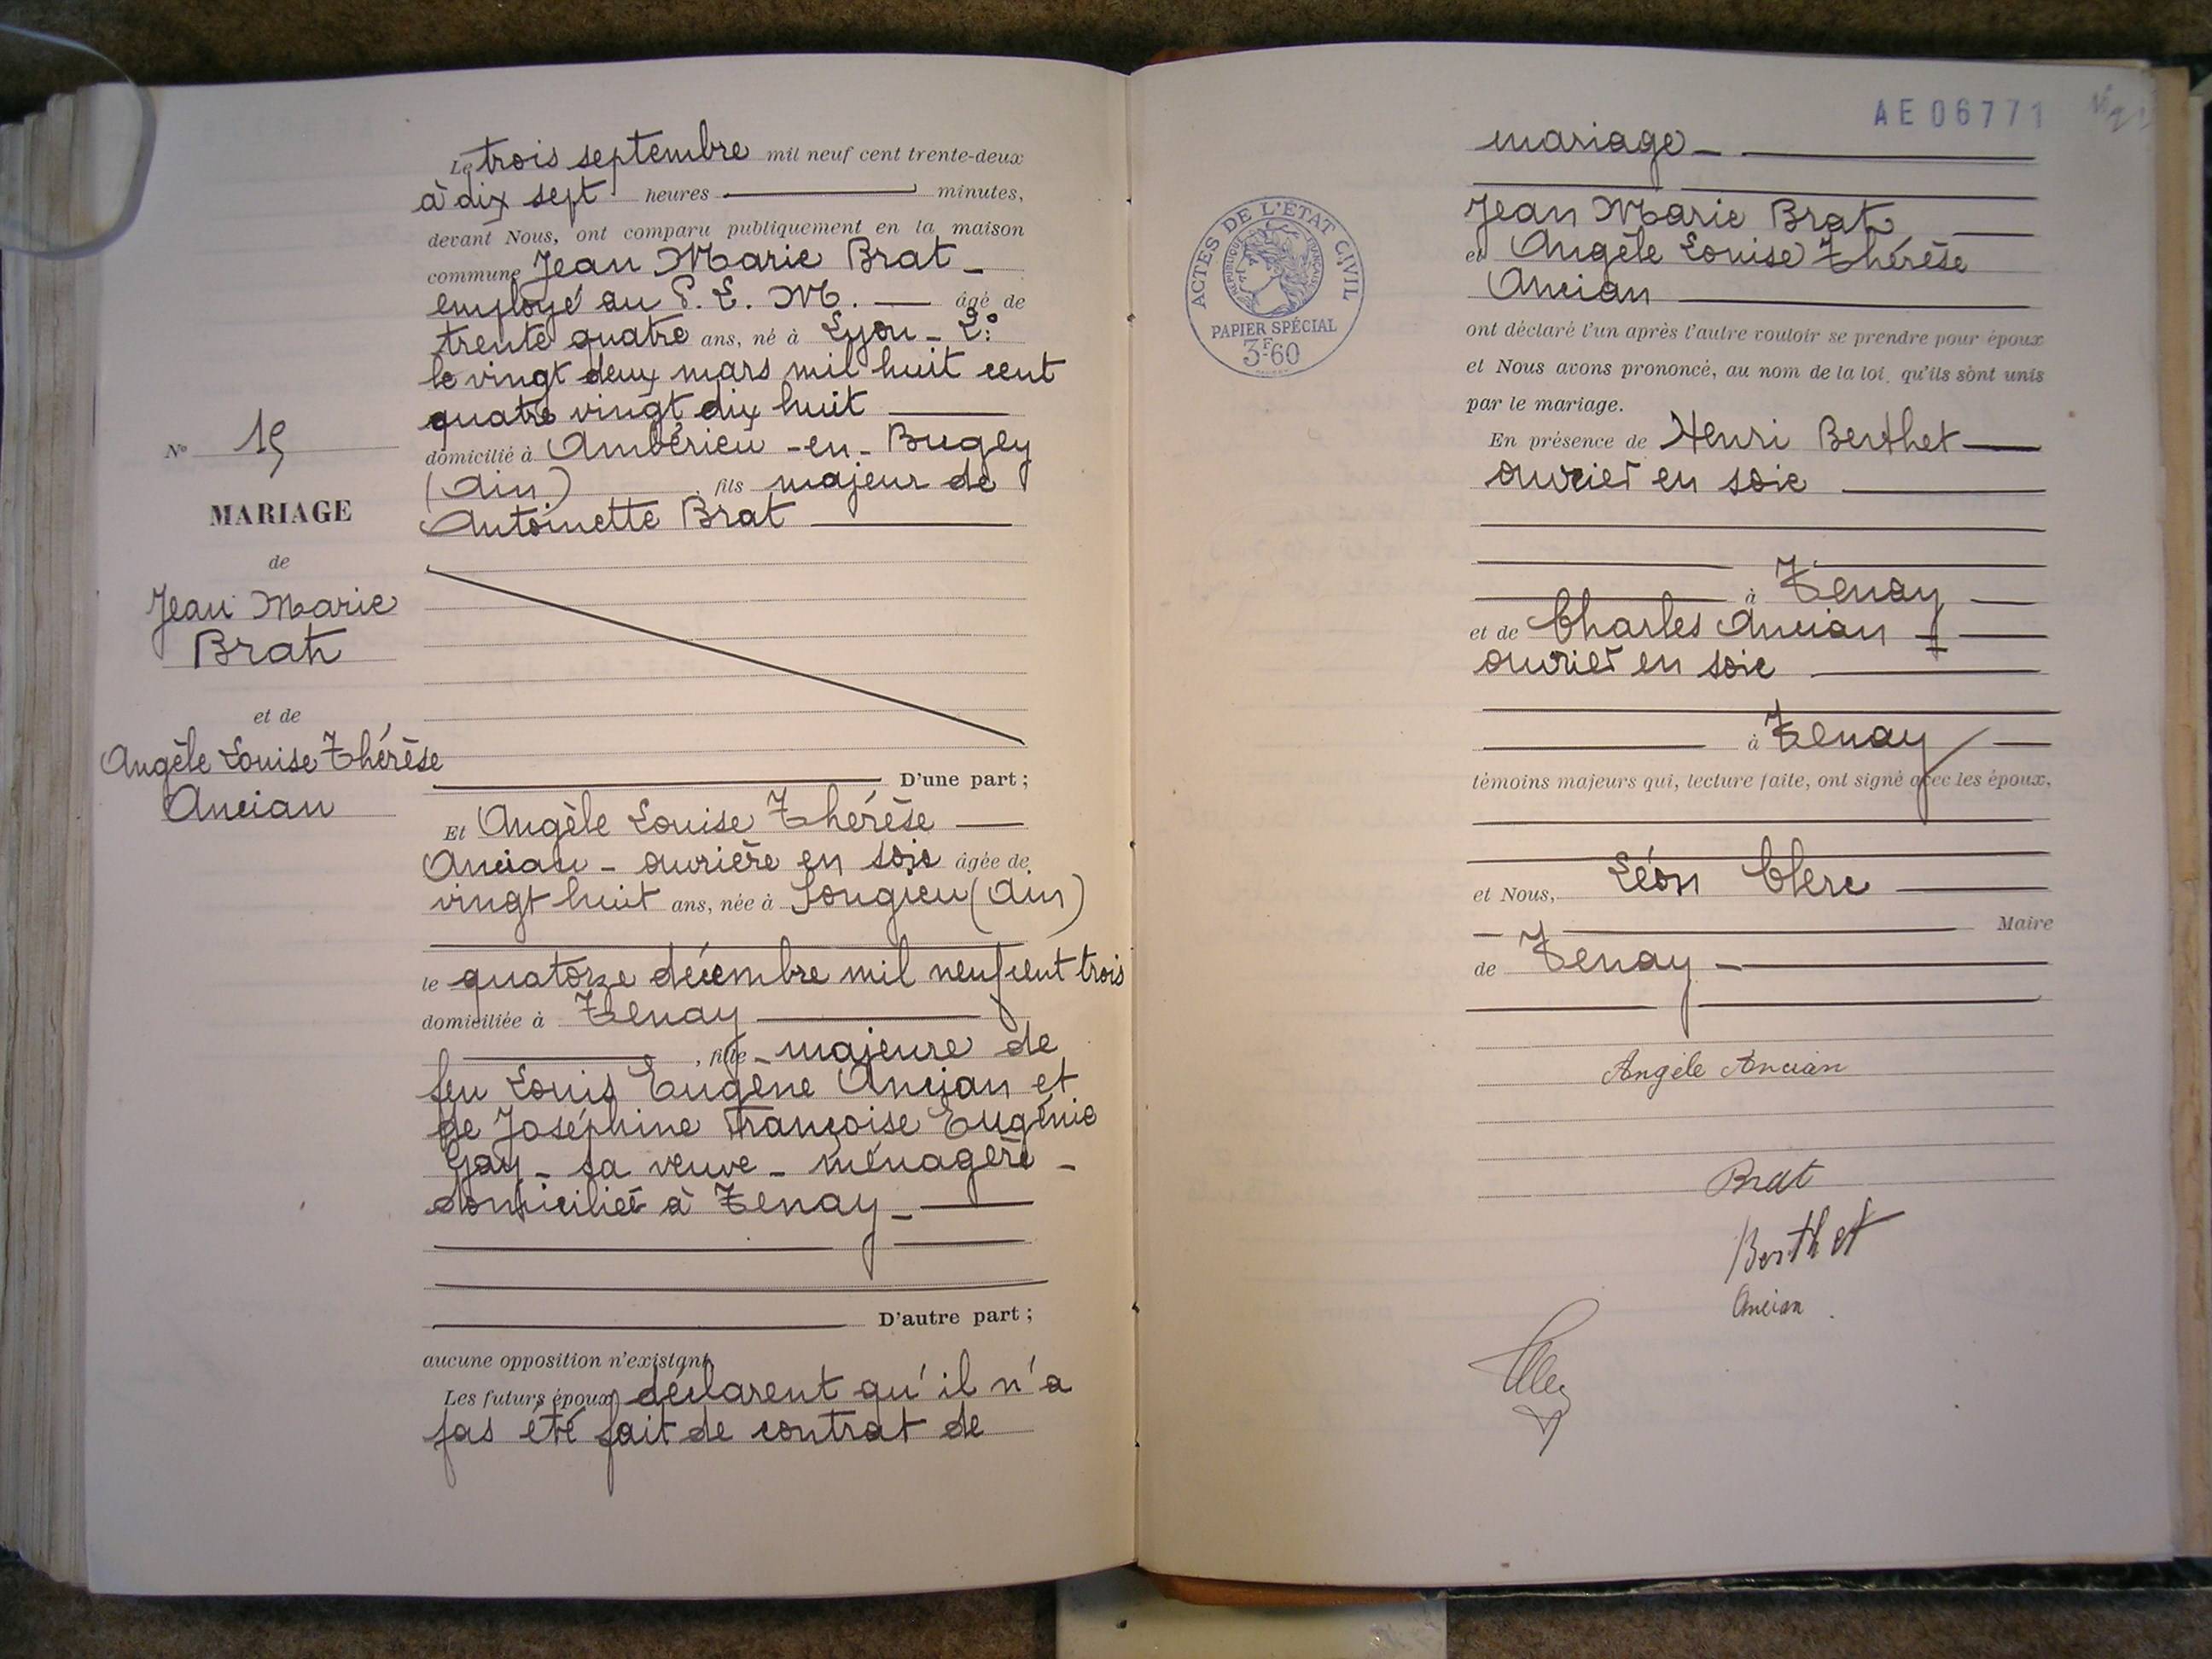 Le trois septembre mil neuf cent trente-deux
à dix sept heures minutes,
devant Nous, ont comparu publiquement en la maison
commune Jean Marie Brat
employé au P. L. M. âgé de
trente quatre ans, né à Lyon - 2°
le vingt deux mars mil huit cent
quatre vingt dix huit
domicilié à Ambérieu-en-Bugey
(Ain) fils majeur de
Antoinette Brat
D'une part ;
Et Angèle Louise Thérèse
Ancian - ouvrière en soie âgée de
vingt huit ans, née à Songieu (Ain)
le quatorze décembre mil neuf cent trois
domiciliée à Tenay
, fille majeure de
feu Louis Eugène Ancian et
de Joséphine Françoise Eugénie
Gay - sa veuve - ménagère -
domiciliée à Tenay -
D'autre part ;
aucune opposition n'existant
Les futurs époux déclarent qu'il n'a
pas été fait de contrat de
N°
MARIAGE
de
Jean Marie
Brat
et de
Angèle Louise Thérèse
Ancian
AE06771
mariage -
Jean Marie Brat
et Angèle Louise Thérèse
Ancian
ont déclaré l'un après l'autre vouloir se prendre pour époux
et Nous avons prononcé, au nom de la loi, qu'ils sont unis
par le mariage.
En présence de Henri Berthet
ouvrier en soie
à Tenay
et de Charles Ancian
ouvrier en soie
à Tenay
témoins majeurs qui, lecture faite, ont signé avec les époux,
et Nous, Léon Clerc
Maire
de Tenay -
Angèle Ancian
Brat
Berthet
Ancian
ACTES DE L'ÉTAT CIVIL
RÉPUBLIQUE FRANÇAISE
PAPIER SPÉCIAL
3F60